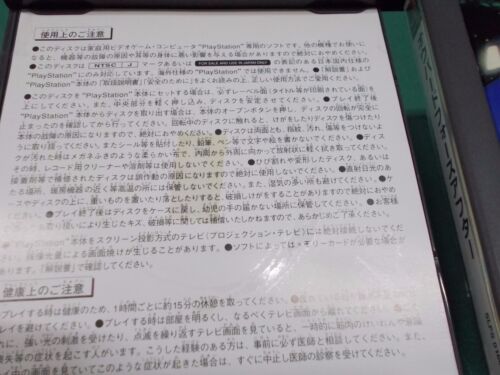 使用上のご注意
●このディスクは家庭用ビデオゲーム・コンピュータ"PlayStation"専用のソフトです。他の機種でお使いに
なると、機器等の故障の原因や耳等の身体に悪い影響を与える場合がありますので絶対におやめください。
●このディスクは NTSC J マークあるいは FOR SALE AND USE IN JAPAN ONLY の表記のある日本国内仕様の
"PlayStation"にのみ対応しています。海外仕様の"PlayStation"では使用できません。●「解説書」および
"PlayStation"本体の「取扱説明書」「安全のために」をよくお読みの上、正しい使用方法でご使用ください。
●このディスクを"PlayStation"本体にセットする場合は、必ずレーベル面(タイトル等が印刷されている面)を
上にしてください。また、中央部分を軽く押し込み、ディスクを安定させてください。●プレイ終了後
"PlayStation"本体からディスクを取り出す場合は、本体のオープンボタンを押し、ディスクの回転が完全に
止まったのを確認してから行ってください。回転中のディスクに触れると、けがをしたりディスクを傷つけたり
本体の故障の原因になりますので、絶対におやめください。●ディスクは両面とも、指紋、汚れ、傷等をつけないよ
うに取り扱ってください。またシール等を貼付したり、鉛筆、ペン等で文字や絵を書かないでください。●ディス
クが汚れた時はメガネふきのような柔らかい布で、内周から外周に向かって放射状に軽く拭き取ってください。
その時、レコード用クリーナーや溶剤等は使用しないでください。●ひび割れや変形したディスク、あるいは
接着剤等で補修されたディスクは誤動作の原因になりますので絶対に使用しないでください。●直射日光のあ
たる場所、暖房機器の近く等高温の所には保管しないでください。また、湿気の多い所も避けてください。●ケ
ースやディスクの上に、重いものを置いたり落としたりすると、破損しけがをすることがありますので絶対におやめ
ください。●プレイ終了後はディスクをケースに戻し、幼児の手の届かない場所に保管してください。●お客様
の取り扱いにより生じたキズ、破損等に関しては補償いたしかねますので、あらかじめご了承ください。
"PlayStation"本体をスクリーン投影方式のテレビ(プロジェクション・テレビ)には絶対接続しないでくだ
さい。残像光量による画面焼けが生じることがあります。●ソフトによってはメモリーカードが必要な場合が
ります。「解説書」で確認してください。
健康上のご注意
プレイする時は健康のため、1時間ごとに約15分の休憩を取ってください。
レイは避けてください。●プレイする時は部屋を明るくし、なるべくテレビ画面から離れてください。
的に、強い光の刺激を受けたり、点滅を繰り返すテレビ画面を見ていると、一時的に筋肉のけいれんや意識
喪失等の症状を起こす人がいます。こうした経験のある方は、事前に必ず医師と相談してください。また
の画面を見ていてこのような症状が起きた場合は、すぐに中止し医師の診察を受けてください。